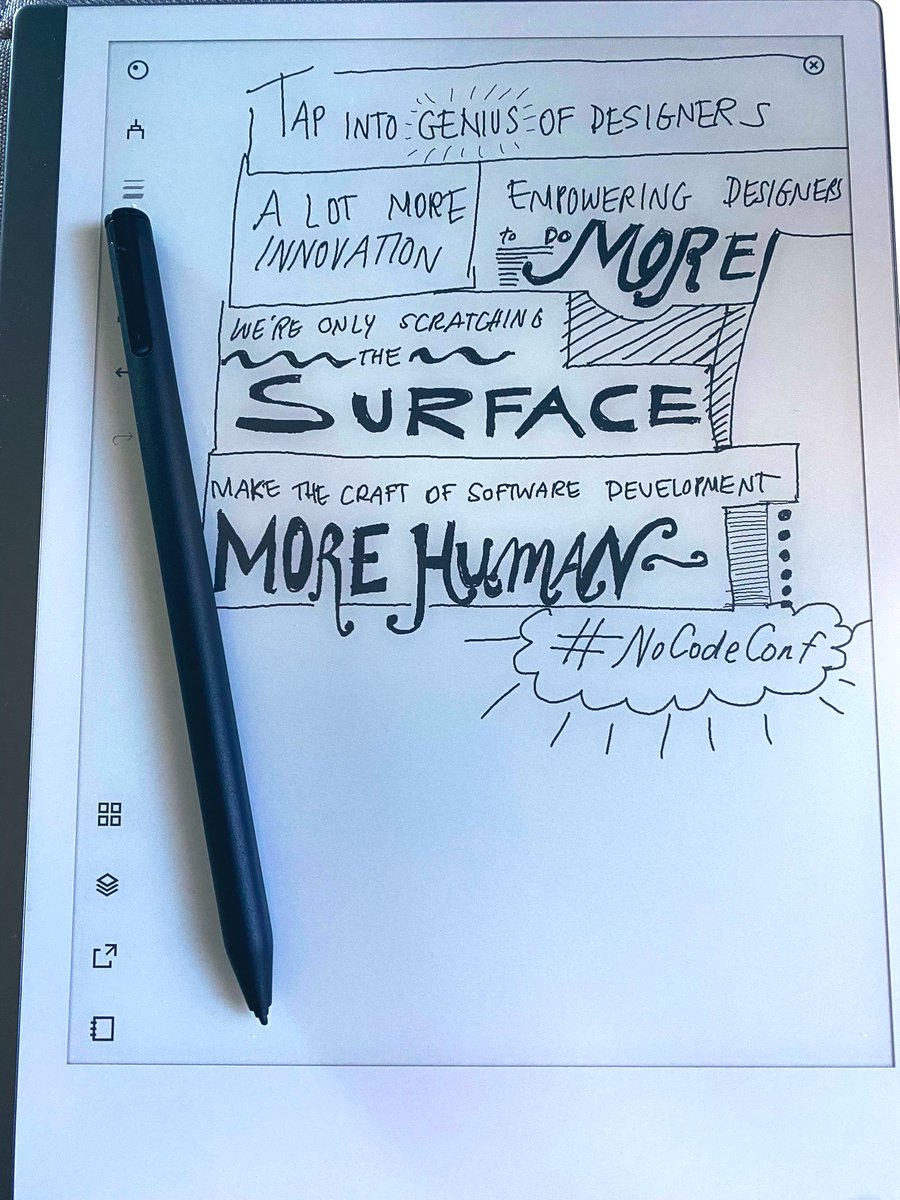 TAP INTO GENIUS OF DESIGNERS
A LOT MORE
INNOVATION
EMPOWERING DESIGNERS
to DO MORE
WE'RE ONLY SCRATCHING
THE
SURFACE
MAKE THE CRAFT OF SOFTWARE DEVELOPMENT
MORE HUMAN
#NoCodeConf